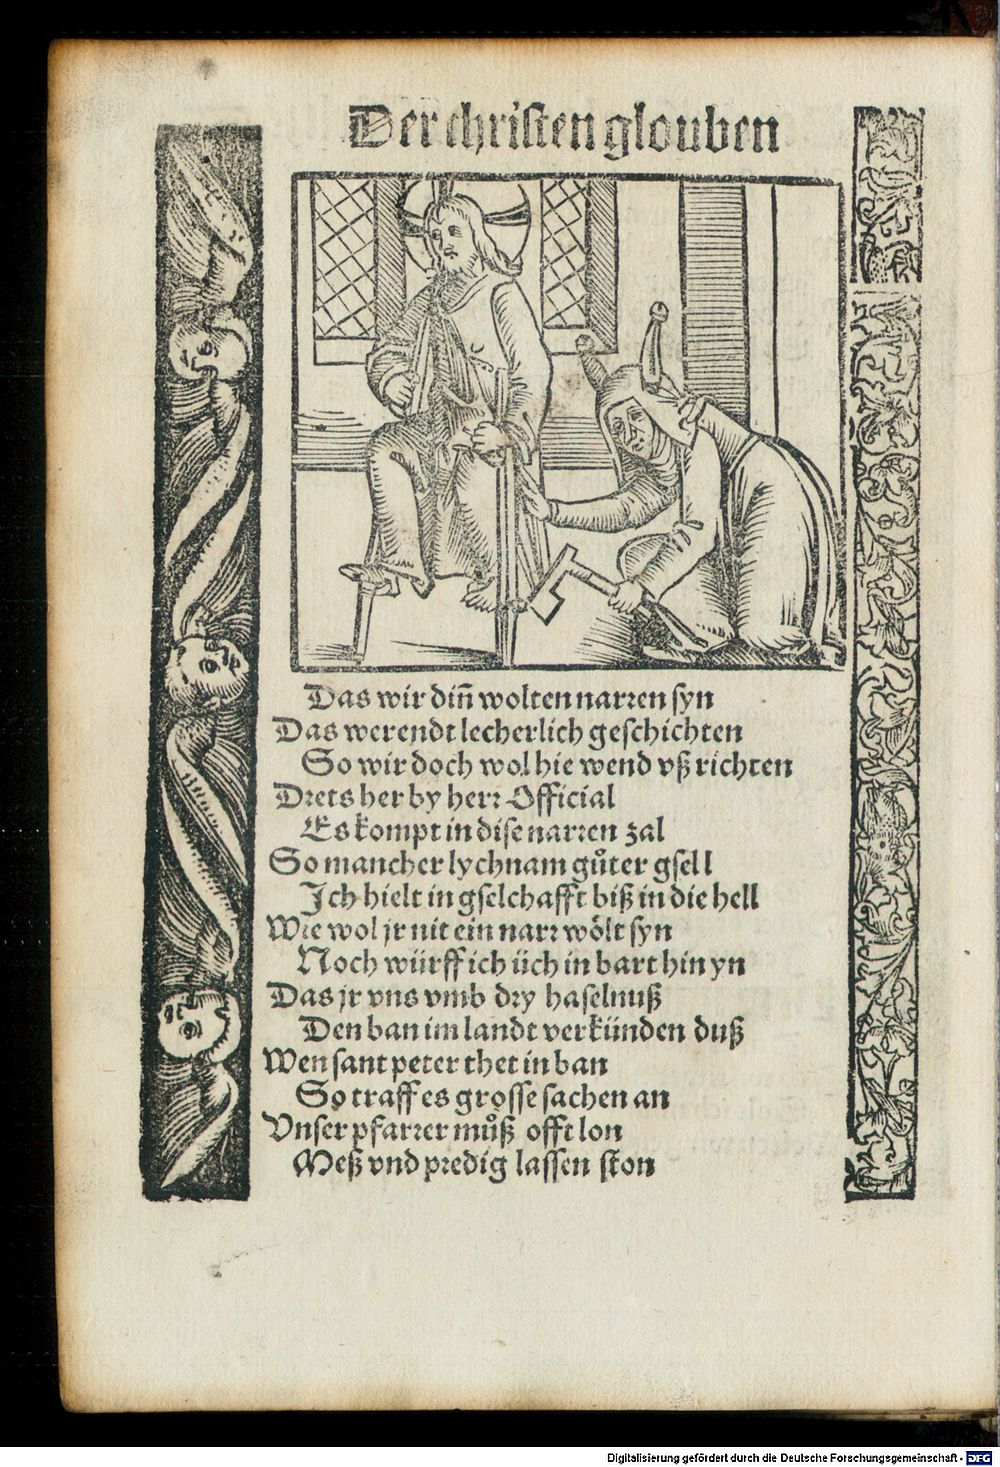 Der christen glouben
Das wir diñ wolten narren syn
Das werendt lecherlich geschichten
So wir doch wol hie wend vß richten
Drets her by herr Official
Es kompt in dise narren zal
So mancher lychnam gůter gsell
Ich hielt in gselchafft biß in die hell
Wie wol jr nit ein narr wölt syn
Noch würff ich üch in bart hin yn
Das jr vns vmb dry haselnuß
Den ban im landt verkünden duß
Wen sant peter thet in ban
So traff es grosse sachen an
Vnser pfarrer můß offt lon
Meß vnd predig lassen ston
Digitalisierung gefördert durch die Deutsche Forschungsgemeinschaft - DFG